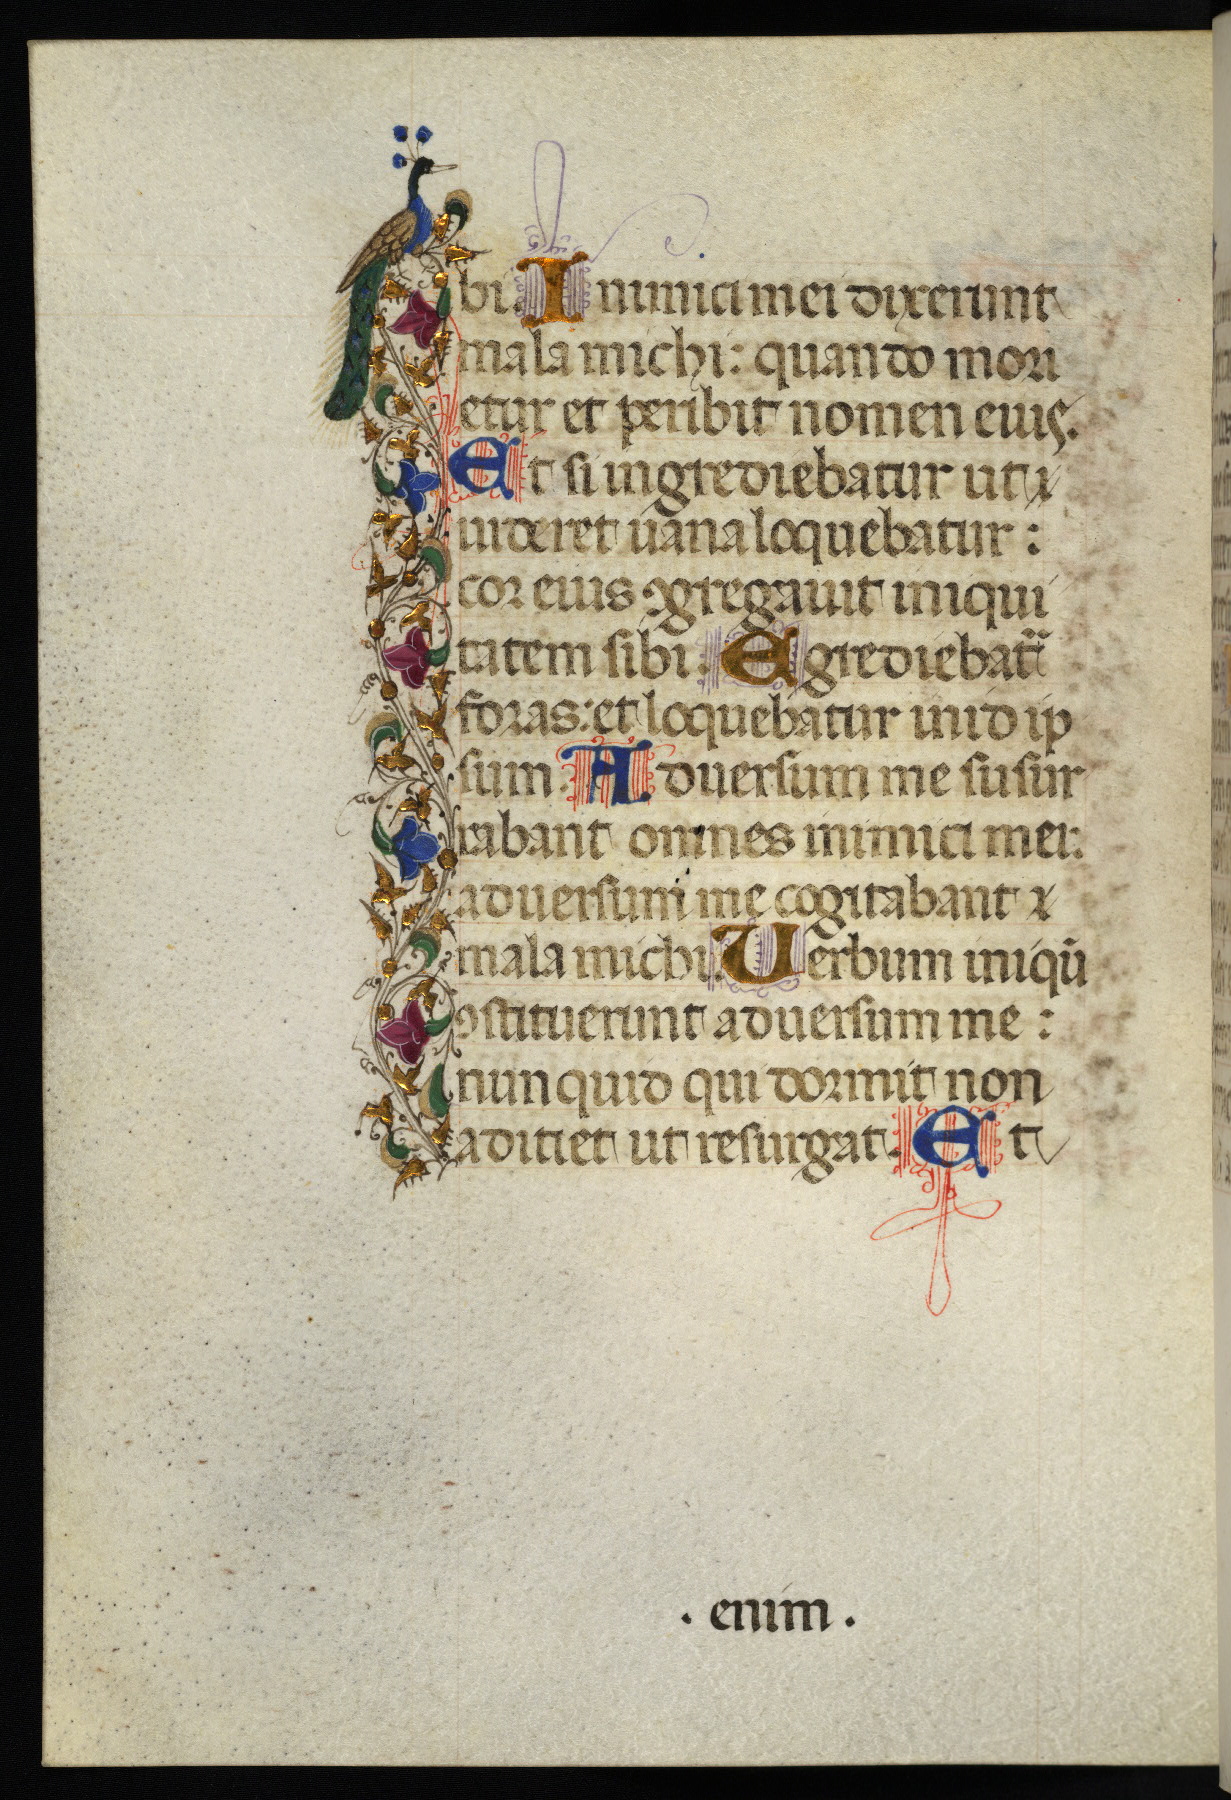 bi. Inimici mei dixerunt
mala michi: quando mori
etur et peribit nomen eius.
Et si ingrediebatur ut
uideret uana loquebatur:
cor eius ꝯgregauit iniqui
tatem sibi. Egrediebat᷑
foras: et loquebatur in id ip
sum. Aduersum me susur
rabant omnes inimici mei:
aduersum me cogitabant
mala michi. Uerbum iniqū
ꝯstituerunt aduersum me:
nunquid qui dormit non
adiciet ut resurgat. Et
. enim .